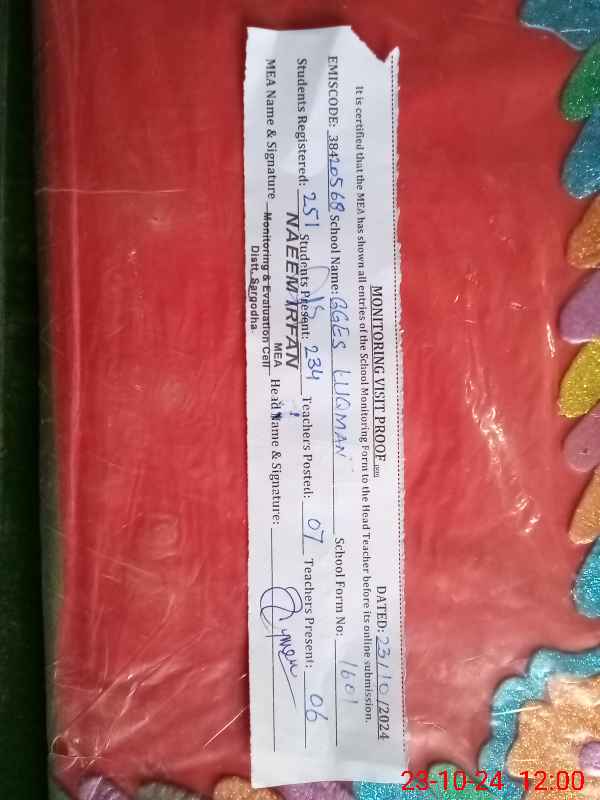 MONITORING VISIT PROOF
DATED: 23/10/2024
It is certified that the MEA has shown all entries of the School Monitoring Form to the Head Teacher before its online submission.
EMISCODE: 38420568 School Name: GGES LUQMAN School Form No: 1601
Students Registered: 251 Students Present: 234 Teachers Posted: 07 Teachers Present: 06
NAEEM IRFAN
MEA
MEA Name & Signature Monitoring & Evaluation Cell Head Name & Signature:
Distt. Sargodha
23-10-24 12:00